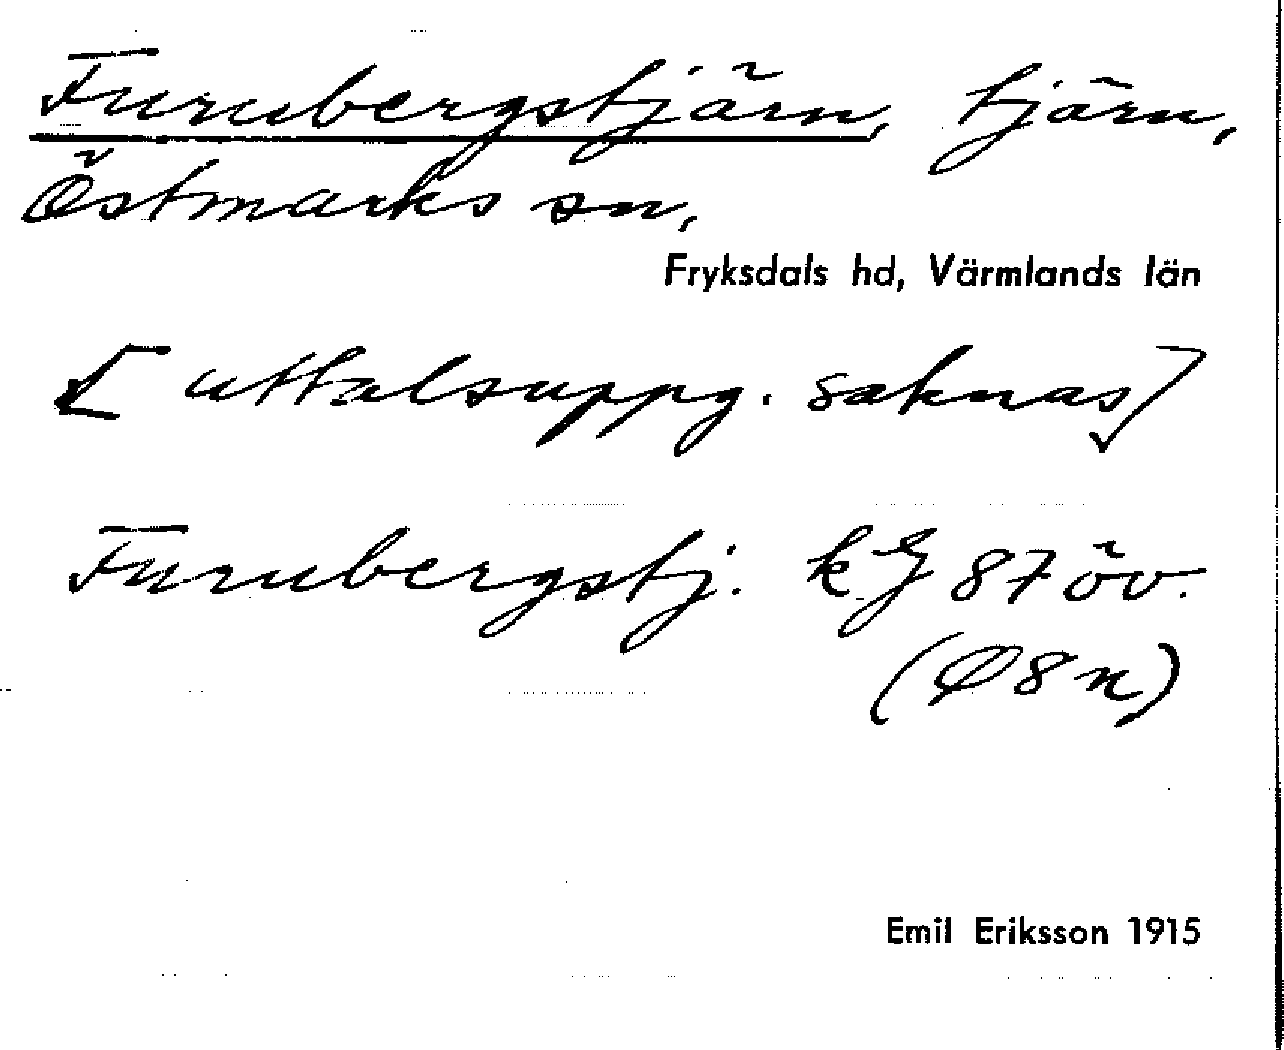 Furubergstjärn, tjärn,
Östmarks sn,
Fryksdals hd, Värmlands län
[uttalsuppg. saknas]
Furubergstj. kG 87 öv.
(Ø8n)
Emil Eriksson 1915